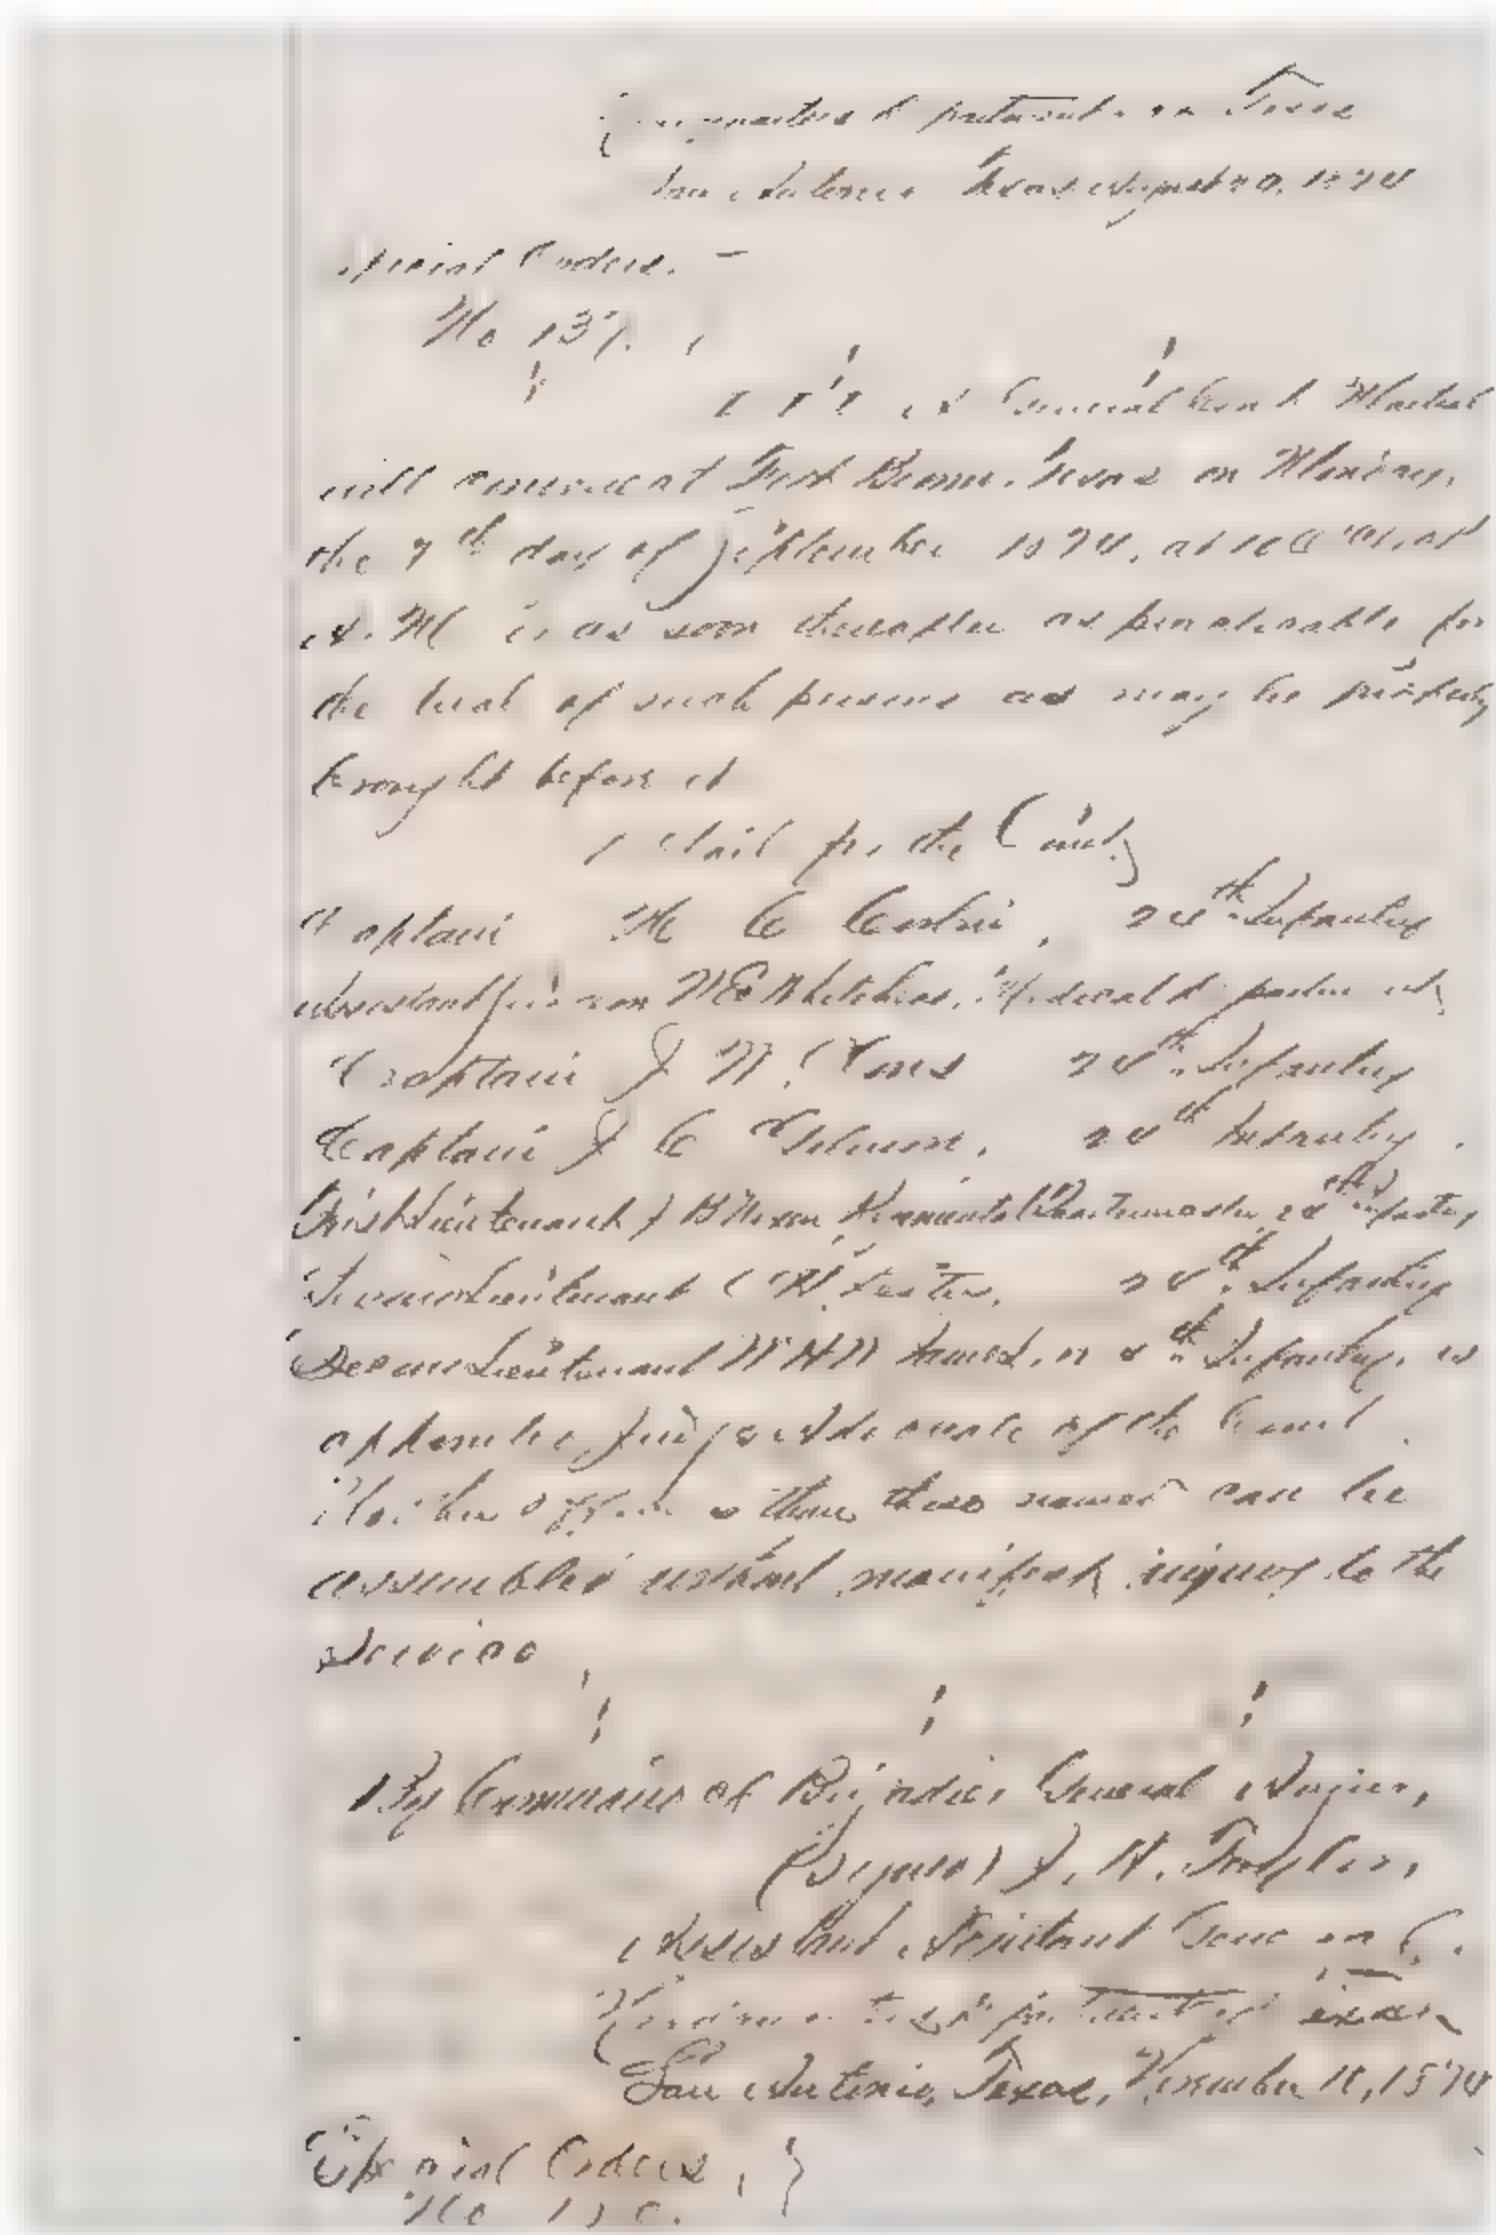 Headquarters Department of Texas
San Antonio Texas August 1874
Special Orders.
No 137.
III A General Court Martial
will convene at Fort Brown, Texas on Monday,
the 7th day of September 1874, at 10 O'Clock
A. M. or as soon thereafter as practicable for
the trial of such persons as may be properly
brought before it
Detail for the Court,
Captain H C Corbin, 24th Infantry
Assistant Surgeon Medical Department
Captain J W Clous 24th Infantry
Captain J C Gilmore, 24th Infantry.
First Lieutenant J B Nixon Regimental Quartermaster 24th Infantry
Second Lieutenant C 24th Infantry
Second Lieutenant W H W James, 24th Infantry, is
appointed Judge Advocate of the Court.
No other officers than those named can be
assembled without manifest injury to the
Service
By Command of Brigadier General Augur,
(Signed) J. H. Taylor,
Assistant Adjutant General.
Headquarters Department of Texas
San Antonio, Texas, 1874
Special Orders,
No